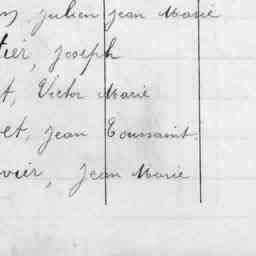 Julien Jean Marie
tier, Joseph
t, Victor Marie
et, Jean Toussaint.
vier, Jean Marie